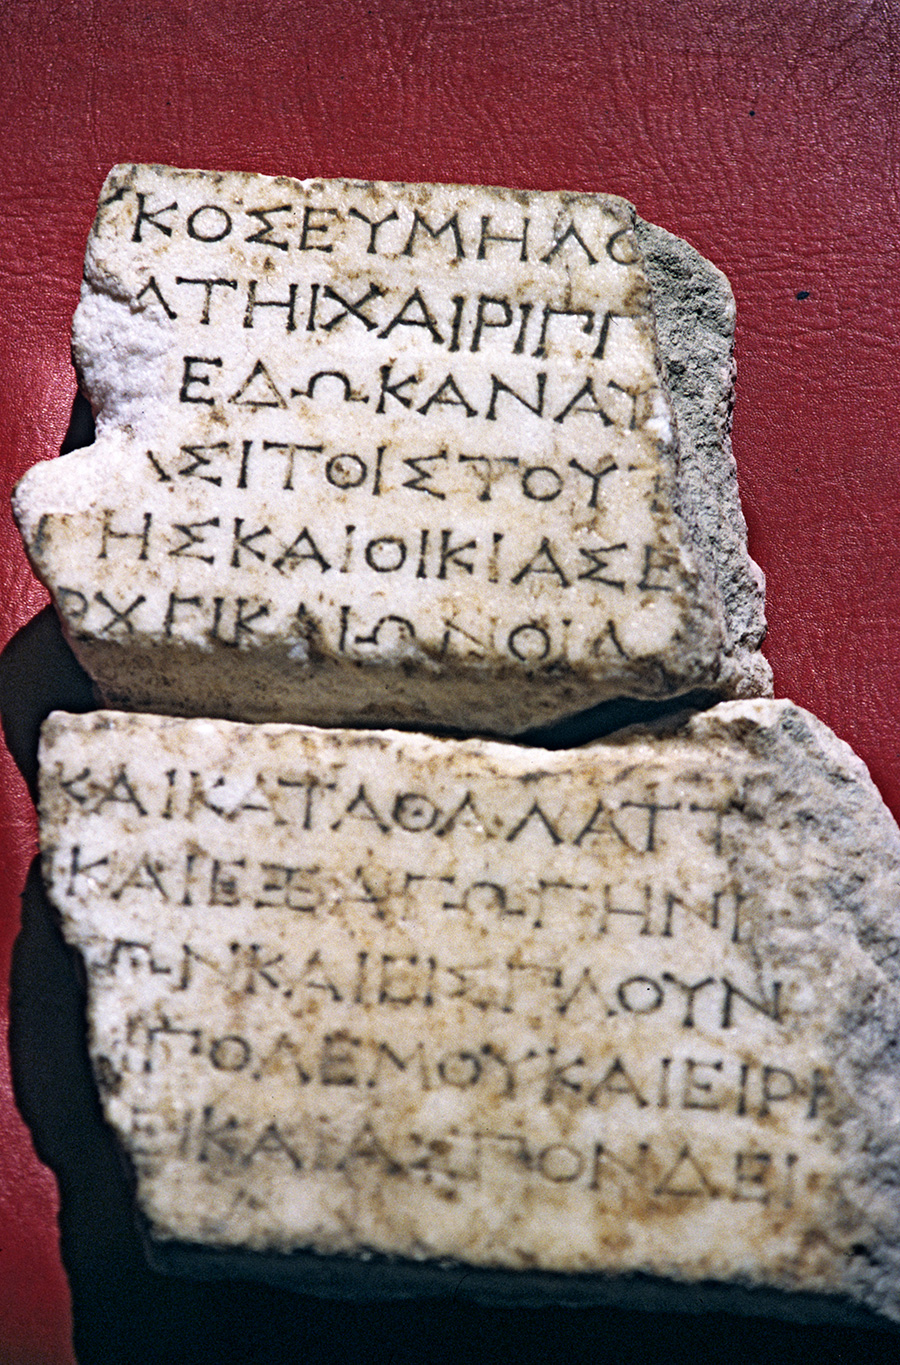 ΥΚΟΣΕΥΜΗΛΟ
ΑΤΗΙΧΑΙΡΙΠΠ
ΕΔΩΚΑΝΑΥ
ΑΣΙΤΟΙΣΤΟΥ
ΗΣΚΑΙΟΙΚΙΑΣΕ
ΡΧΓΙΚΑΙΩΝΟΙΑ
ΚΑΙΚΑΤΑΘΑΛΑΤΤ
ΚΑΙΕΞΑΓΩΓΗΝΙ
ΩΝΚΑΙΕΙΣΠΛΟΥΝ
ΠΟΛΕΜΟΥΚΑΙΕΙΡΗ
ΕΙΚΑΙΑΣΠΟΝΔΕΙ